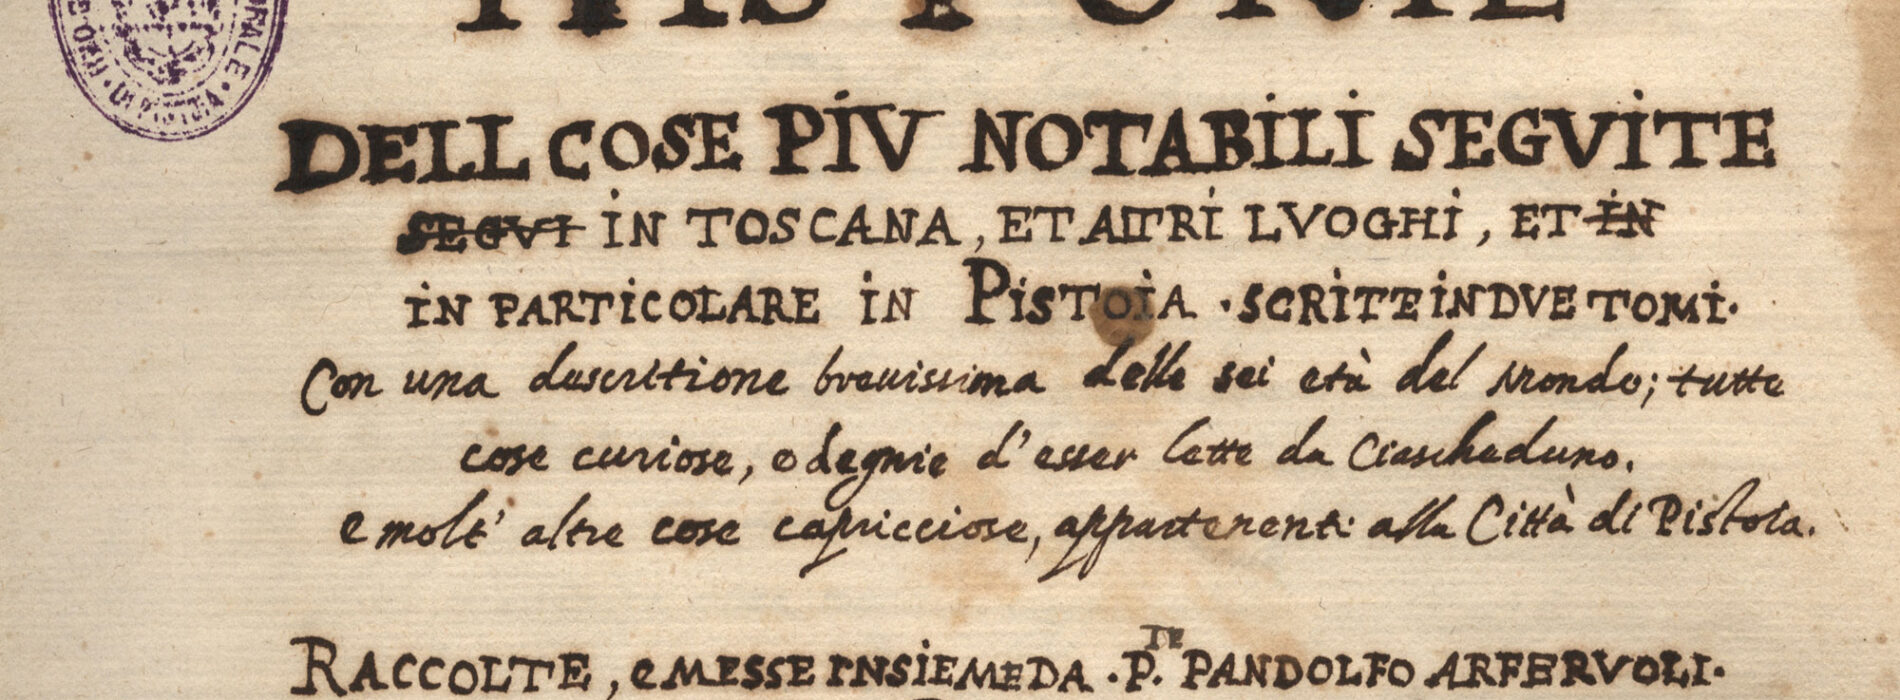 HISTORIE
DELL COSE PIV NOTABILI SEGVITE
SEGVI IN TOSCANA, ET ALTRI LVOGHI, ET IN
IN PARTICOLARE IN PISTOIA · SCRITE IN DVE TOMI ·
Con una descritione breuissima delle sei età del Mondo; tutte
cose curiose, e degnie d'esser lette da Ciascheduno.
e molt' altre cose capricciose, appartenenti alla Città di Pistoia.
RACCOLTE, e MESSE INSIEME DA · P.TE PANDOLFO ARFERVOLI ·